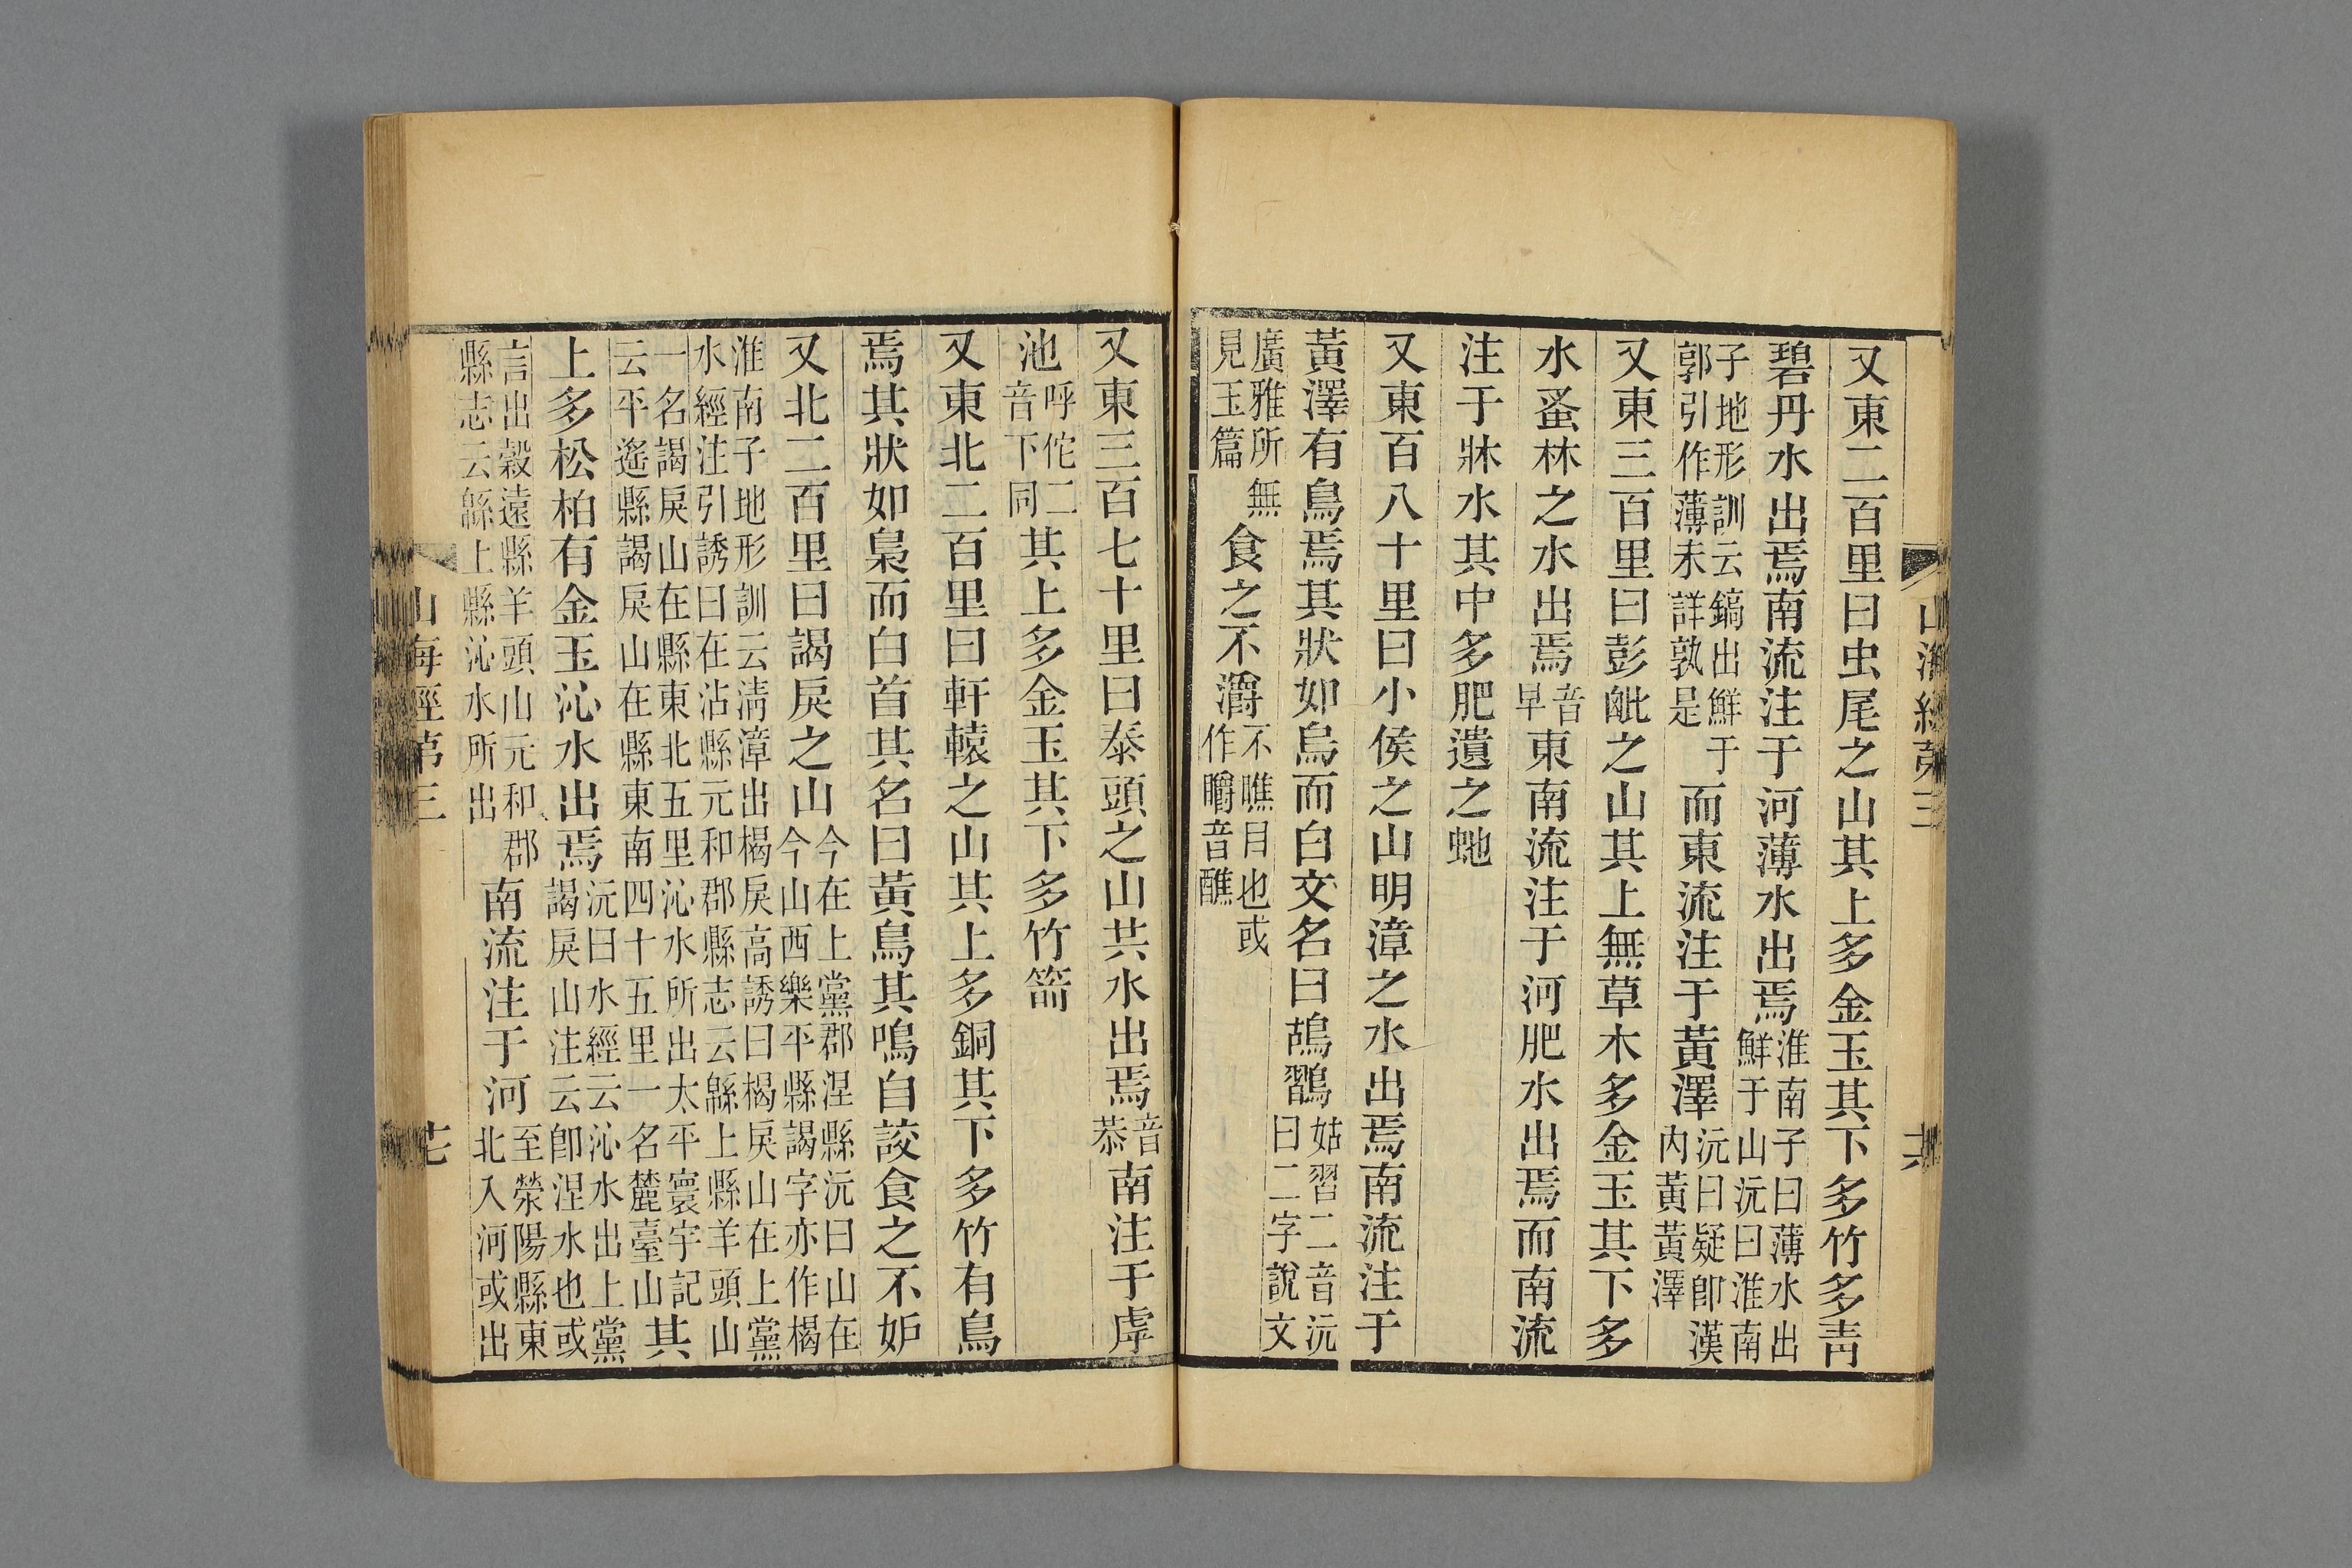 山海經第三
六
又東二百里曰虫尾之山其上多金玉其下多竹多靑
碧丹水出焉南流注于河薄水出焉淮南子曰薄水出鮮于山沅曰淮南
子地形訓云鎬出鮮于郭引作薄未詳孰是而東流注于黃澤沅曰疑卽漢內黃黃澤
又東三百里曰彭毗之山其上無草木多金玉其下多
水蚤林之水出焉音早東南流注于河肥水出焉而南流
注于牀水其中多肥遺之虵
又東百八十里曰小侯之山明漳之水出焉南流注于
黃澤有鳥焉其狀如烏而白文名曰鴣鸐姑習二音沅曰二字說文
廣雅所無見玉篇食之不灂不瞧目也或作㬭音醮
又東三百七十里曰泰頭之山共水出焉音恭南注于虖
池呼佗二音下同其上多金玉其下多竹箭
又東北二百里曰軒轅之山其上多銅其下多竹有鳥
焉其狀如梟而白首其名曰黃鳥其鳴自詨食之不妒
又北二百里曰謁戾之山今在上黨郡涅縣沅曰山在今山西樂平縣謁字亦作楬
淮南子地形訓云淸漳出楬戾高誘曰楬戾山在上黨水經注引誘曰在沾縣元和郡縣志云緜上縣羊頭山
一名謁戾山在縣東北五里沁水所出太平寰宇記云平遙縣謁戾山在縣東南四十五里一名麓臺山其
上多松柏有金玉沁水出焉沅曰水經云沁水出上黨謁戾山注云卽涅水也或
言出穀遠縣羊頭山元和郡縣志云緜上縣沁水所出南流注于河至滎陽縣東北入河或出
山海經第三
七